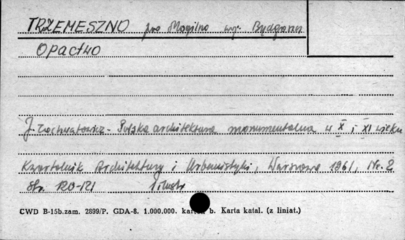 TRZEMESZNO pow Mogilno woj. Bydgoszcz
OPACTWO
J. Zachwatowicz - Polska architektura monumentalna w X i XI wieku
Kwartalnik Architektury i Urbanistyki, Warszawa 1961, Nr. 2
Str. 120-121
CWD B-15b.zam. 2899/P. GDA-8. 1.000.000. b. Karta katal. (z liniat.)